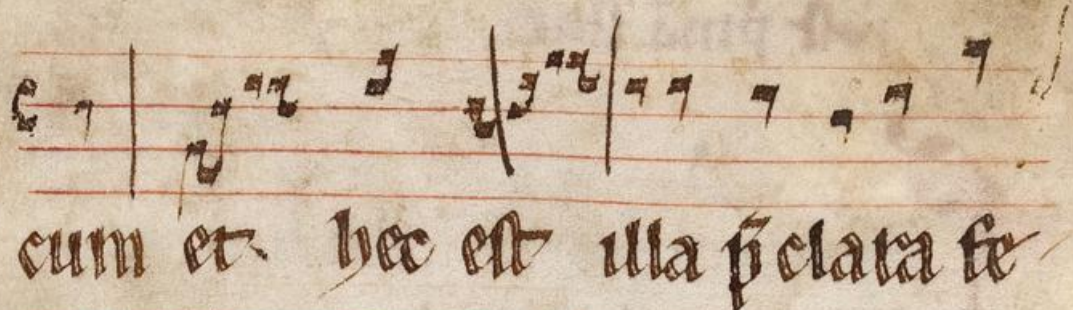 cum et hec est illa p̄clara fe